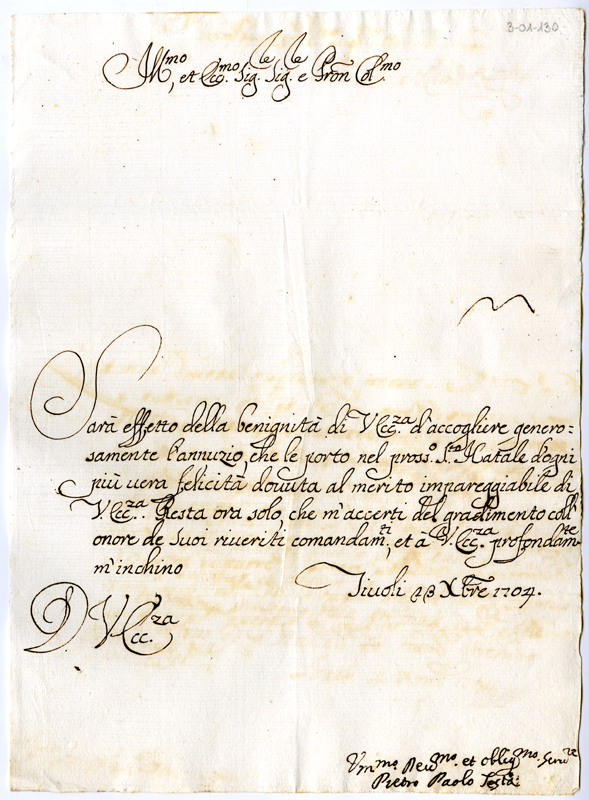 3-01-130
Ill.mo, et Ecc.mo Sig.le Sig.le e Pron Col.mo
Sarà effetto della benignità di V Ecc.za d'accogliere genero=
samente l'annuzio, che le porto nel pross.o S.to Natale d'ogni
più vera felicità dovuta al merito impareggiabile di
V Ecc.za. Resta ora solo, che m'accerti del gradimento coll'
onore de Suoi riveriti comandam.ti, et à V Ecc.za profondam.te
m'inchino
Tivoli Xbre 1704.
D V Ecc.za
Um.mo Dev.mo et oblig.mo Serv.re
Pietro Paolo Testa